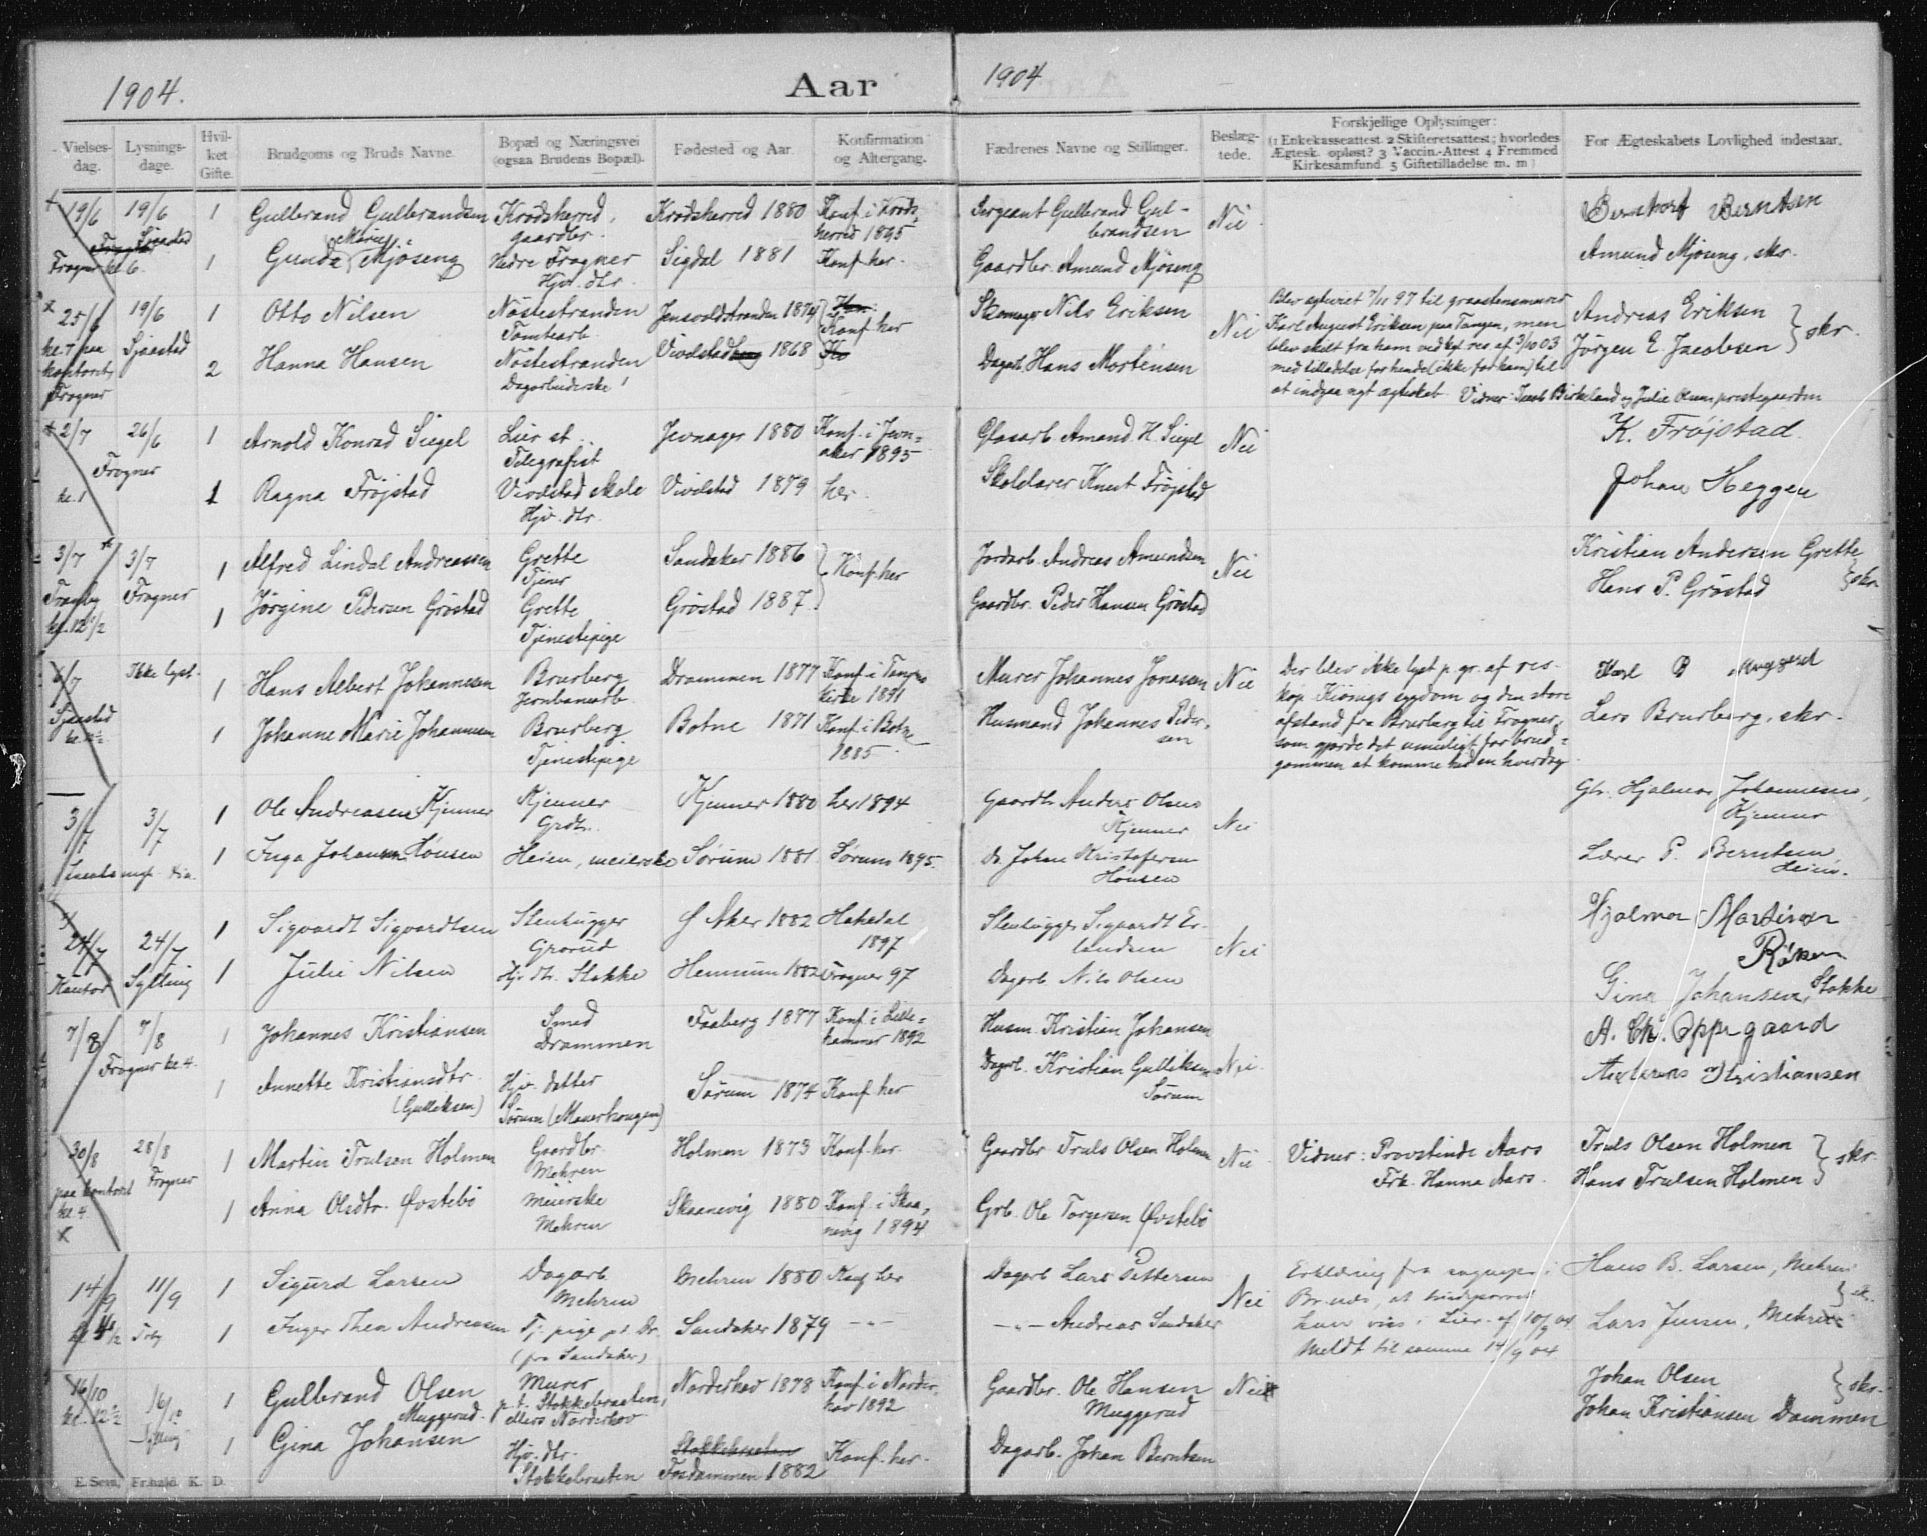 1904.
Aar
1904
Vielses-
dag.
Lysnings-
dage.
Hvil-
ket
Gifte.
Brudgoms og Bruds Navne.
Bopæl og Næringsvei
(ogsaa Brudens Bopæl).
Fødested og Aar.
Konfirmation
og Altergang.
Fædrenes Navne og Stillinger.
Beslæg-
tede.
Forskjellige Oplysninger:
(1 Enkekasseattest 2 Skifteretsattest; hvorledes
Ægtesk. opløst? 3 Vaccin.-Attest 4 Fremmed
Kirkesamfund 5 Giftetilladelse m. m)
For Ægteskabets Lovlighed indestaar.
19/6 19/6 1 Gulbrand Gulbrandsen Krødsherred, Krødsherred 1880 Konf. i Krøds-
gaardbr. herred 1895
Sjaastad
Frogner kl. 6.
Sergeant Gulbrand Gul-
brandsen
Nei
Berntsen
1 Gunda Marie Mjøseng Nedre Frogner Sigdal 1881 Konf. her.
Hjv. dtr.
Gaardbr. Amund Mjøseng
Amund Mjøseng, skr.
25/6 19/6 1 Otto Nilsen Nøstestranden 1874 Konf. her
Tomtearb.
kl. 7 paa Sjaastad
kontoret,
Frogner
Skomager Nils Eriksen
Nei
Andreas Eriksen
2 Hanna Hansen Nøstestranden Vivelstad 1868
Dagarbeiderske
Dagarb. Hans Mortensen
Jørgen E. Jacobsen skr.
Blev ægteviet 7/11 97 til graastensmurer
Karl August Eriksen paa Tangen, men
blev skilt fra ham ved kgl. res. af 3/10 03
med tilladelse for hende (ikke for ham) til
at indgaa nyt ægteskab. Vidner: Birkeland og Julie prestegaarden
2/7 26/6 1 Arnold Konrad Siegel Lier st. Jevnager 1880 Konf. i Jevn-
Telegrafist aker 1895
Frogner
kl. 1
Glasarb. Amand H. Siegel
Nei
K. Frøjstad
1 Ragna Frøjstad Vivelstad skole Vivelstad 1879 her.
Hjv. dtr.
Skolelærer Knut Frøjstad
Johan Heggen
3/7 3/7 1 Alfred Lindal Andreassen Grette Sandaker 1886 Konf. her
Tjener
Tranby Frogner
kl. 12 1/2
Jordarb. Andreas Amundsen
Nei
Kristian Andersen Grette
1 Jørgine Pedersen Grøstad Grette Grøstad 1887.
Tjenestepige
Gaardbr. Peder Hansen Grøstad
Hans P. Grøstad skr
6/7 Ikke lyst. 1 Hans Albert Johannesen Brurberg Drammen 1877 Konf. i Tangen
Jernbanearb. kirke 1891
Sjaastad
Murer Johannes Jonasen
Nei
1 Johanne Marie Johannesen Brurberg Botne 1871 Konf. i Botne
Tjenestepige 1885
Husmand Johannes Peder-
sen
Der blev ikke lyst p. gr. af res.
kap. Kiørigs sygdom og den store
afstand fra Brurberg til Frogner,
som gjorde det umuligt for brud-
gommen at komme hid en hverdag
Lars Brurberg, skr.
3/7 3/7 1 Ole Andreasen Kjenner Kjenner Kjenner 1880 her 1894
Grdbr.
Gaardbr. Anders Olsen
Kjenner
Nei
Gbr. Hjalmar Johannesen,
Kjenner
1 Inga Johansen Hønsen Heien, meierske Sørum 1881 Sørum 1895.
do. Johan Kristofersen
Hønsen
Lærer P. Berntsen
Heien.
24/7 24/7 1 Sigvardt Sigvardtsen Stenhugger Aker 1882 Hakedal
Grorud 1897
Kontor Sylling
Stenhugger Sigvardt Er-
landsen
Nei
Hjalmar Martinsen
Røken
1 Julie Nilsen Hjv. dtr. Stokke Hennum 1882 Frogner 97
Dagarb. Nils Olsen
Gina Johansen, Stokke
7/8 7/8 1 Johannes Kristiansen Smed Faaberg 1877 Konf. i Lille-
Drammen hammer 1892
Frogner kl. 4.
Husm. Kristian Johansen
Nei
A. Chr. Oppegaard
1 Annette Kristiansdtr. Hjv. datter Sørum 1874 Konf. her
(Gulliksen) Sørum (Mauerhougen)
Dagarb. Kristian Gulliksen
Sørum
Kristiansen
30/8 28/8 1 Martin Trulsen Holmen Gaardbr. Holmen 1873 Konf. her.
Mehren
paa kontoret Frogner
kl. 4
Gaardbr. Truls Olsen Holmen
Nei
Vidner: Provstinde Aars
Frk. Hanna Aars.
Truls Olsen Holmen
1 Anna Olsdtr. Øvstebø Meierske Skaanevig 1880 Konf. i Skaa-
Mehren nevig 1894
Grb. Ole Torgersen Øvstebø
Hans Trulsen Holmen skr.
14/9 11/9 1 Sigurd Larsen Dagarb. Mehren 1880 Konf. her
Mehren
Dagarb. Lars Pettersen
Nei
Erklæring fra sogneprest i
Hans B. Larsen, Mehren
1 Inger Thea Andreasen Tj. pige p.t. Dr. Sandaker 1879 —"—
(fra Sandaker)
—"— Andreas Sandaker
kan vies i Lier af 10/9 04
Meldt til samme 14/9 04
Lars Jensen, Mehren
16/10 16/10 1 Gulbrand Olsen Murer Norderhov 1878 Konf. i Norder-
Muggerud. p.t. Stokkebraaten, hov 1892
ellers Norderhov
kl. 12 1/2 Sylling
Gaardbr. Ole Hansen
Muggerud
Nei
Johan Olsen
1 Gina Johansen Hjv. dtr. Stokkebraaten Konf. her.
Stokkebraaten Fosdammen 1882
Dagarb. Johan Berntsen
Johan Kristiansen Dammen skr.
E. Sem, Fr.hald. K. D.